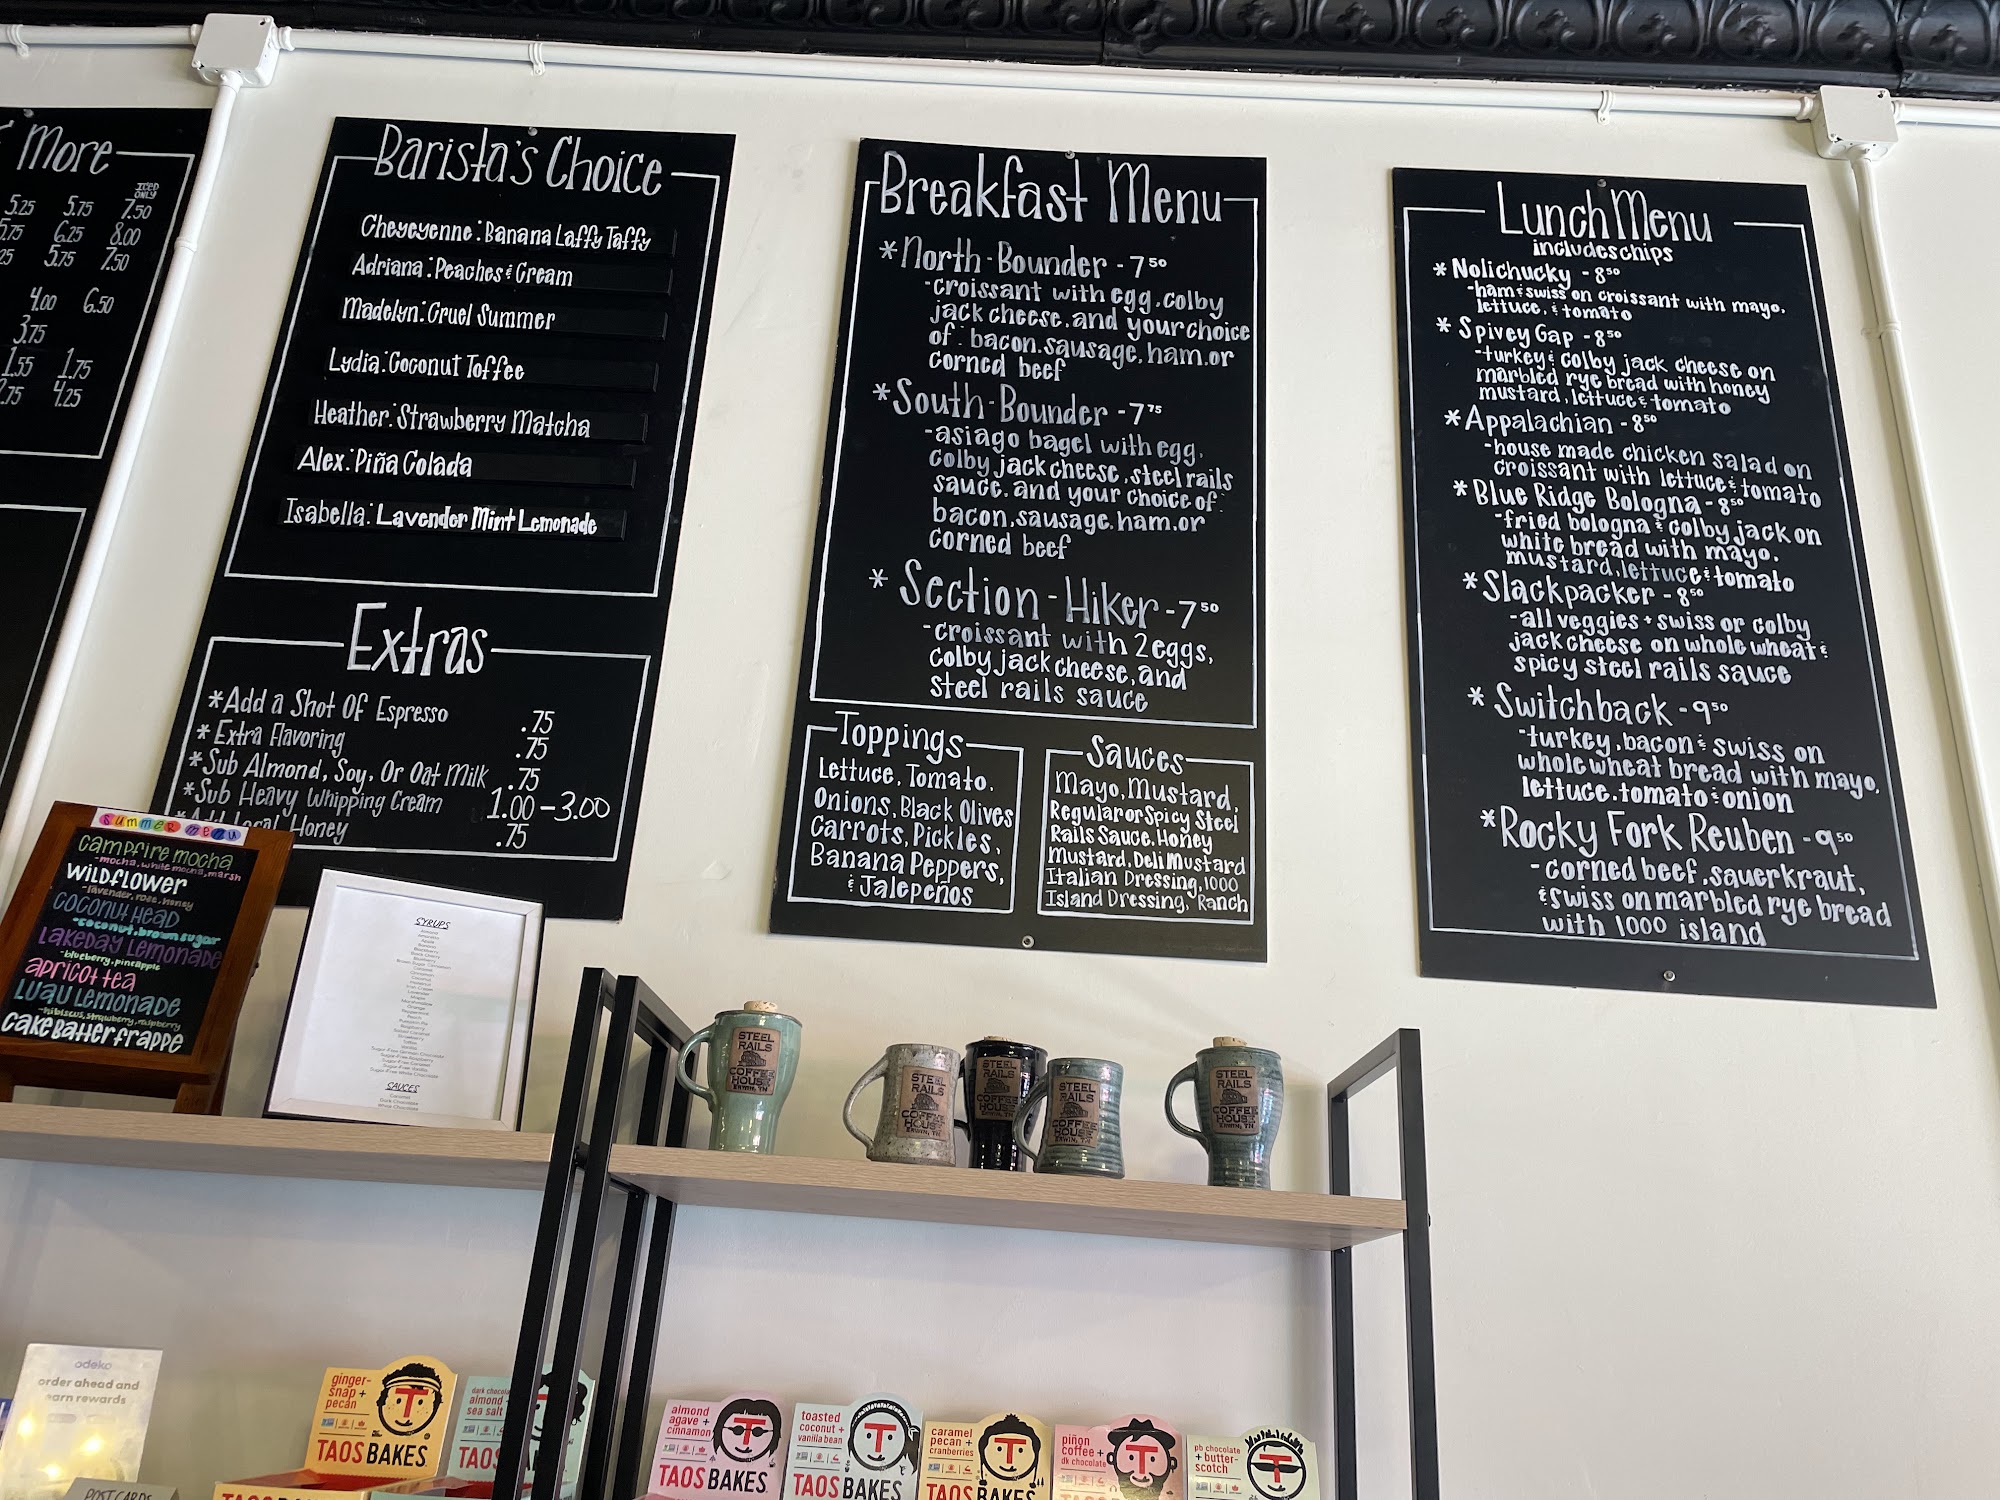 More
ICED ONLY
5.25 5.75 7.50
6.25 8.00
5.75 7.50
4.00 6.50
3.75
1.55 1.75
4.25
Barista's Choice
Cheyeyenne: Banana Laffy Taffy
Adriana: Peaches & Cream
Madelyn: Cruel Summer
Lydia: Coconut Toffee
Heather: Strawberry Matcha
Alex: Piña Colada
Isabella: Lavender Mint Lemonade
Extras
*Add a Shot Of Espresso .75
*Extra Flavoring .75
*Sub Almond, Soy, Or Oat Milk .75
*Sub Heavy Whipping Cream 1.00-3.00
*Add Local Honey .75
Breakfast Menu
*North-Bounder - 7⁵⁰
-croissant with egg, colby
jack cheese, and your choice
of: bacon, sausage, ham, or
corned beef
*South-Bounder - 7⁷⁵
-asiago bagel with egg,
colby jack cheese, steel rails
sauce, and your choice of:
bacon, sausage, ham, or
corned beef
*Section-Hiker - 7⁵⁰
-croissant with 2 eggs,
colby jack cheese, and
steel rails sauce
Toppings
Lettuce, Tomato,
Onions, Black Olives
Carrots, Pickles,
Banana Peppers,
& Jalepeños
Sauces
Mayo, Mustard,
Regular or Spicy Steel
Rails Sauce, Honey
Mustard, Deli Mustard
Italian Dressing, 1000
Island Dressing, Ranch
Lunch Menu
includes chips
*Nolichucky - 8⁵⁰
-ham & swiss on croissant with mayo,
lettuce, & tomato
*Spivey Gap - 8⁵⁰
-turkey & colby jack cheese on
marbled rye bread with honey
mustard, lettuce & tomato
*Appalachian - 8⁵⁰
-house made chicken salad on
croissant with lettuce & tomato
*Blue Ridge Bologna - 8⁵⁰
-fried bologna & colby jack on
white bread with mayo,
mustard, lettuce & tomato
*Slackpacker - 8⁵⁰
-all veggies + swiss or colby
jack cheese on whole wheat &
spicy steel rails sauce
*Switchback - 9⁵⁰
-turkey, bacon & swiss on
whole wheat bread with mayo,
lettuce, tomato & onion
*Rocky Fork Reuben - 9⁵⁰
-corned beef, sauerkraut,
& swiss on marbled rye bread
with 1000 island
summer menu
campfire mocha
-mocha, white mocha, marsh
wildflower
-lavender, rose, honey
coconut head
-coconut, brown sugar
Lakeday Lemonade
-blueberry, pineapple
apricot tea
Luau Lemonade
-hibiscus, strawberry, raspberry
cake batter frappe
SYRUPS
SAUCES
Caramel
Dark Chocolate
White Chocolate
STEEL
RAILS
COFFEE
HOUSE
ERWIN, TN
STEEL
RAILS
COFFEE
HOUSE
ERWIN, TN
STEEL
RAILS
STEEL
RAILS
COFFEE
HOUSE
ERWIN, TN
STEEL
RAILS
COFFEE
HOUSE
ERWIN, TN
odeko
order ahead and
earn rewards
POSTCARDS
ginger-
snap +
pecan
TAOS BAKES
almond +
sea salt
TAOS
almond
agave +
cinnamon
TAOS BAKES
toasted
coconut +
vanilla bean
TAOS BAKES
caramel
pecan +
cranberries
TAOS BAKES
piñon
coffee +
dk chocolate
TAOS BAKES
pb chocolate
+ butter-
scotch